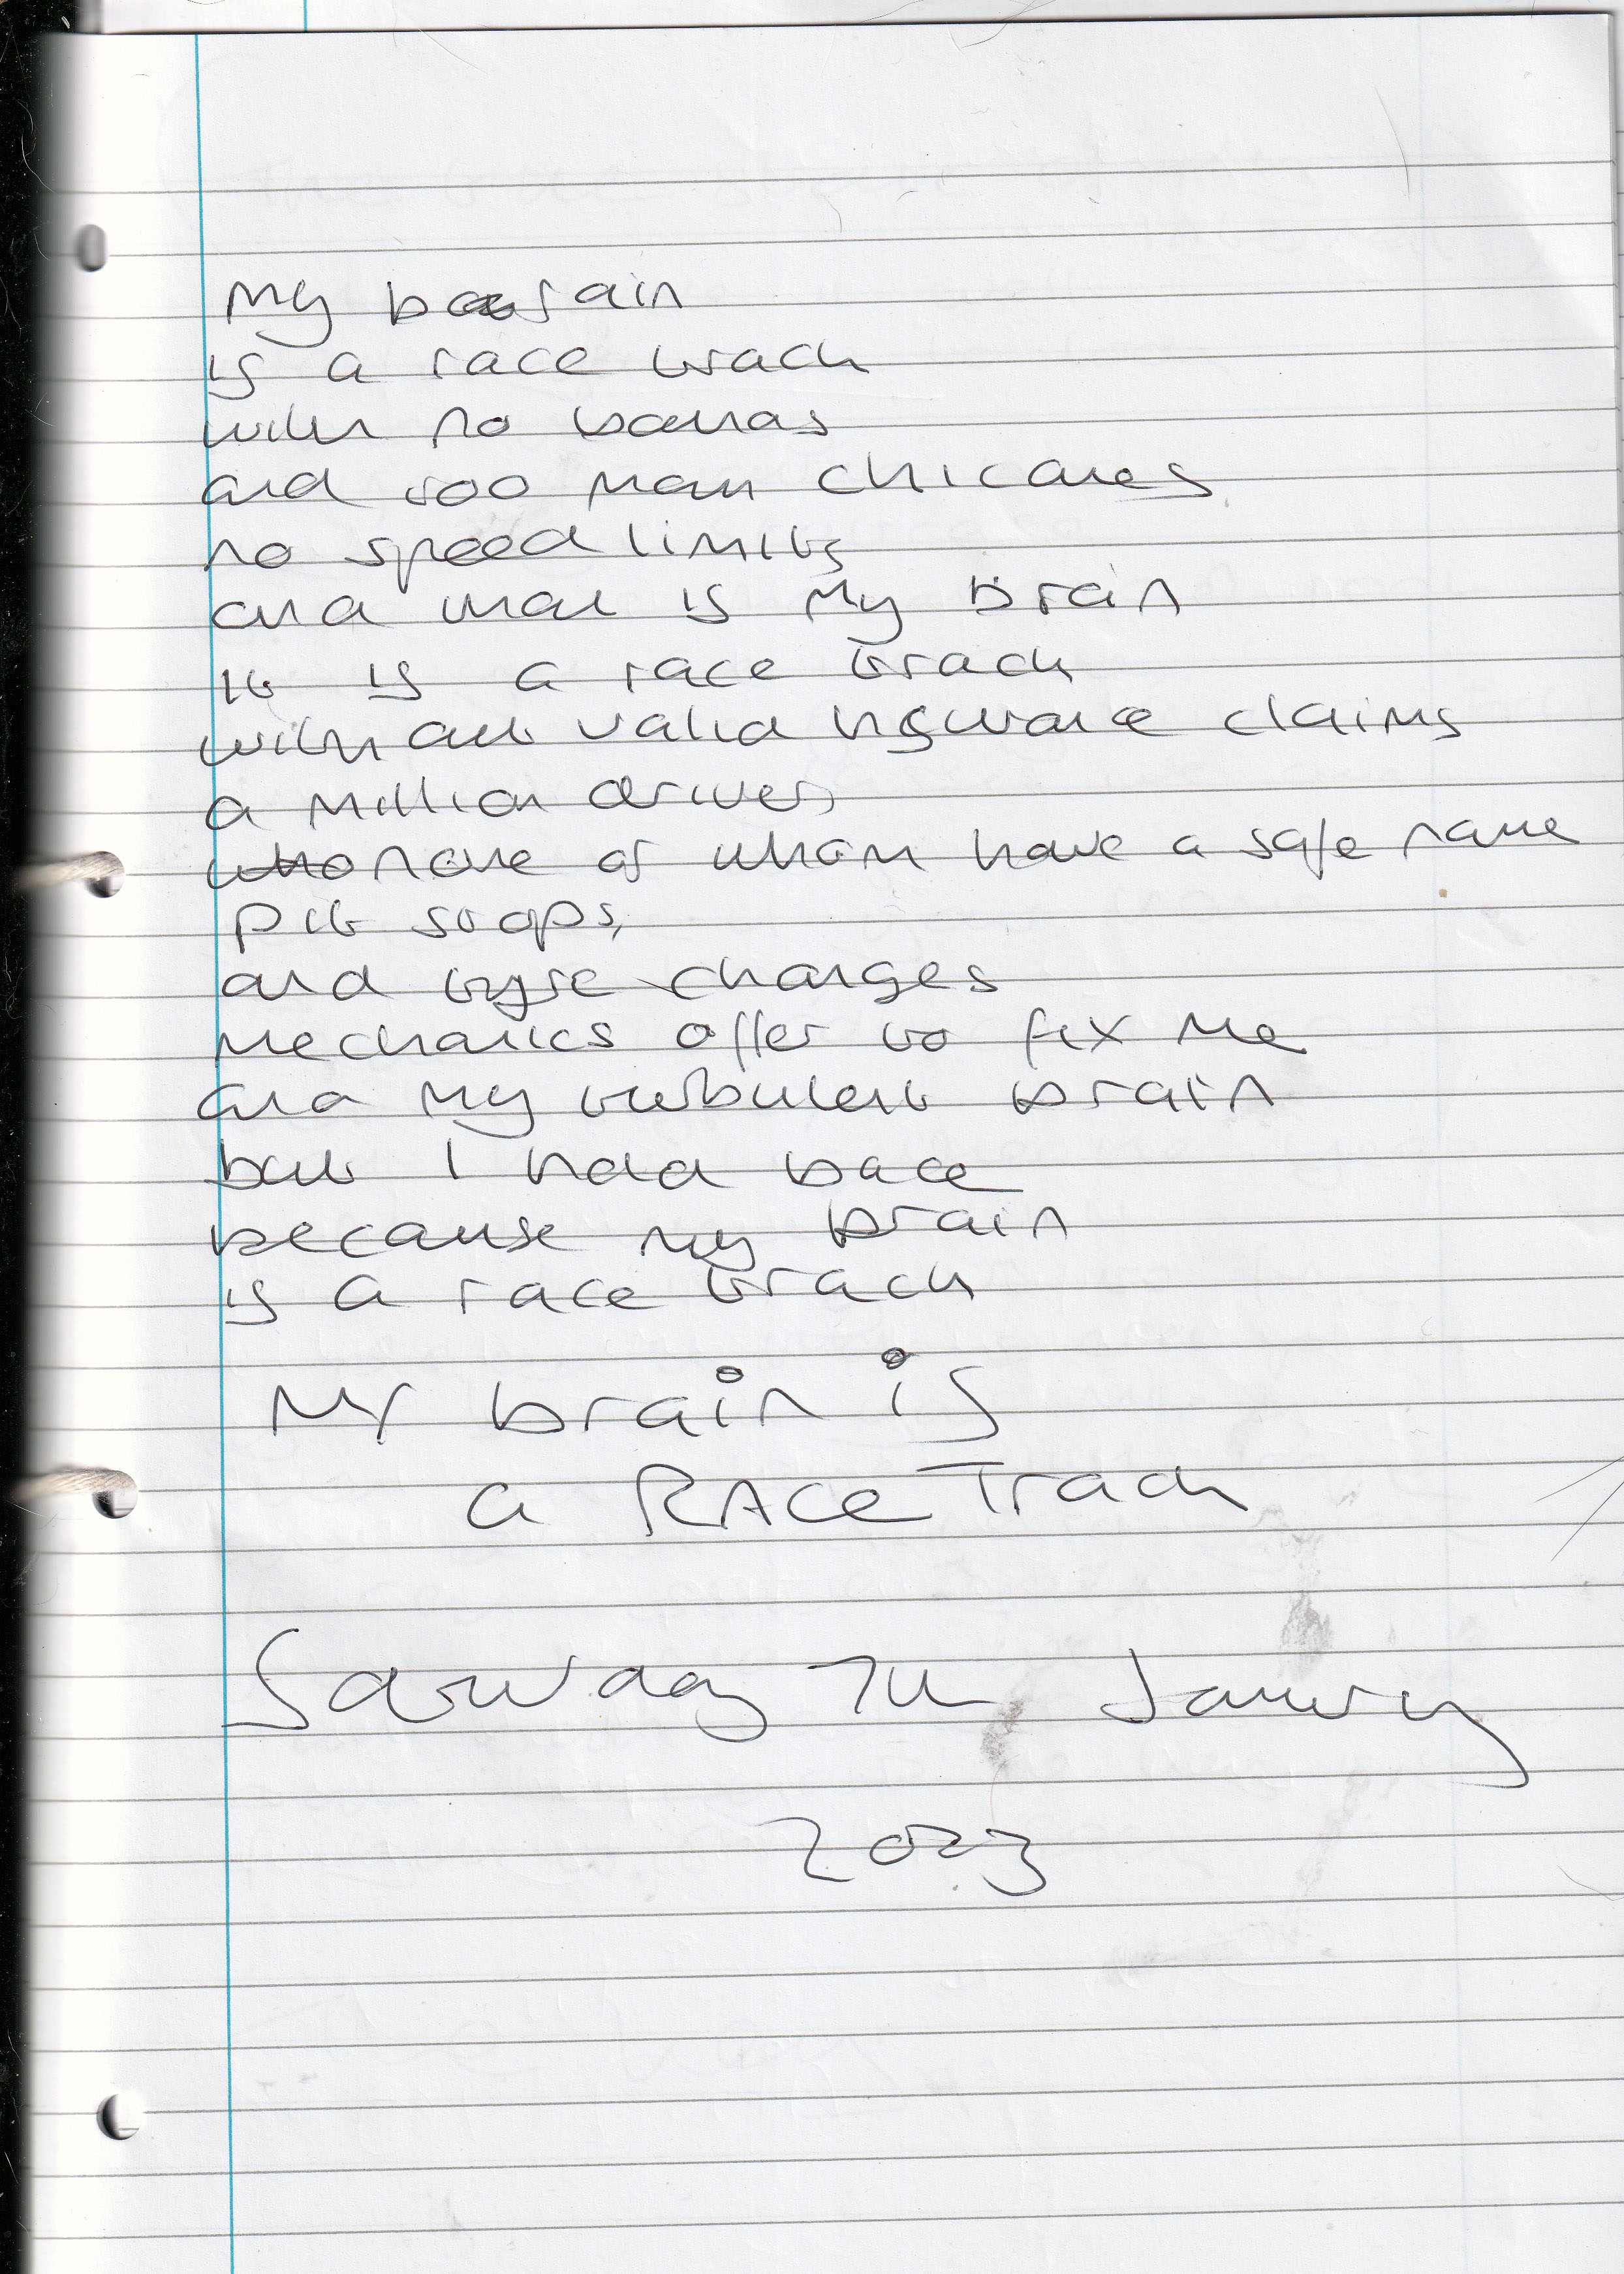 My brain
is a race track
with no
and too many chicanes
no speed limits
and that is my brain
it is a race track
without valid insurance claims
a million drivers
none of whom have a safe name
pit stops,
and tyre changes
mechanics offer to fix me
and my turbulent brain
but I hold back
because my brain
is a race track
My brain is
a RACE Track
Saturday 7th January
2023